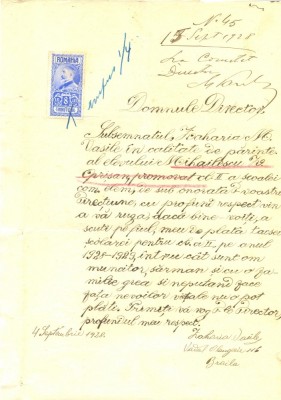 N. 45
15 Sept 1928
La Comitet
ROMANIA
Domnule Director
Subsemnatul, Zaharia M.
Vasile în calitate de părinte
al elevului Mihailescu
promovat cl. II a scoalei
com. elem. de sub onorata D-voastră
Direcțiune, cu profund respect vin
a vă ruga, dacă bine-voiți, a
scuti pe fiul meu de plata taxei
școlarei pentru cl. II, pe anul
1928-1929, întru cât sunt om
muncitor, sărman și cu o fa-
milie grea și neputând face
față nevoilor nu o pot
plăti. Primiți vă rog D-le Director,
profundul meu respect.
4 Septembrie 1928.
Zaharia Vasile
116
Braila